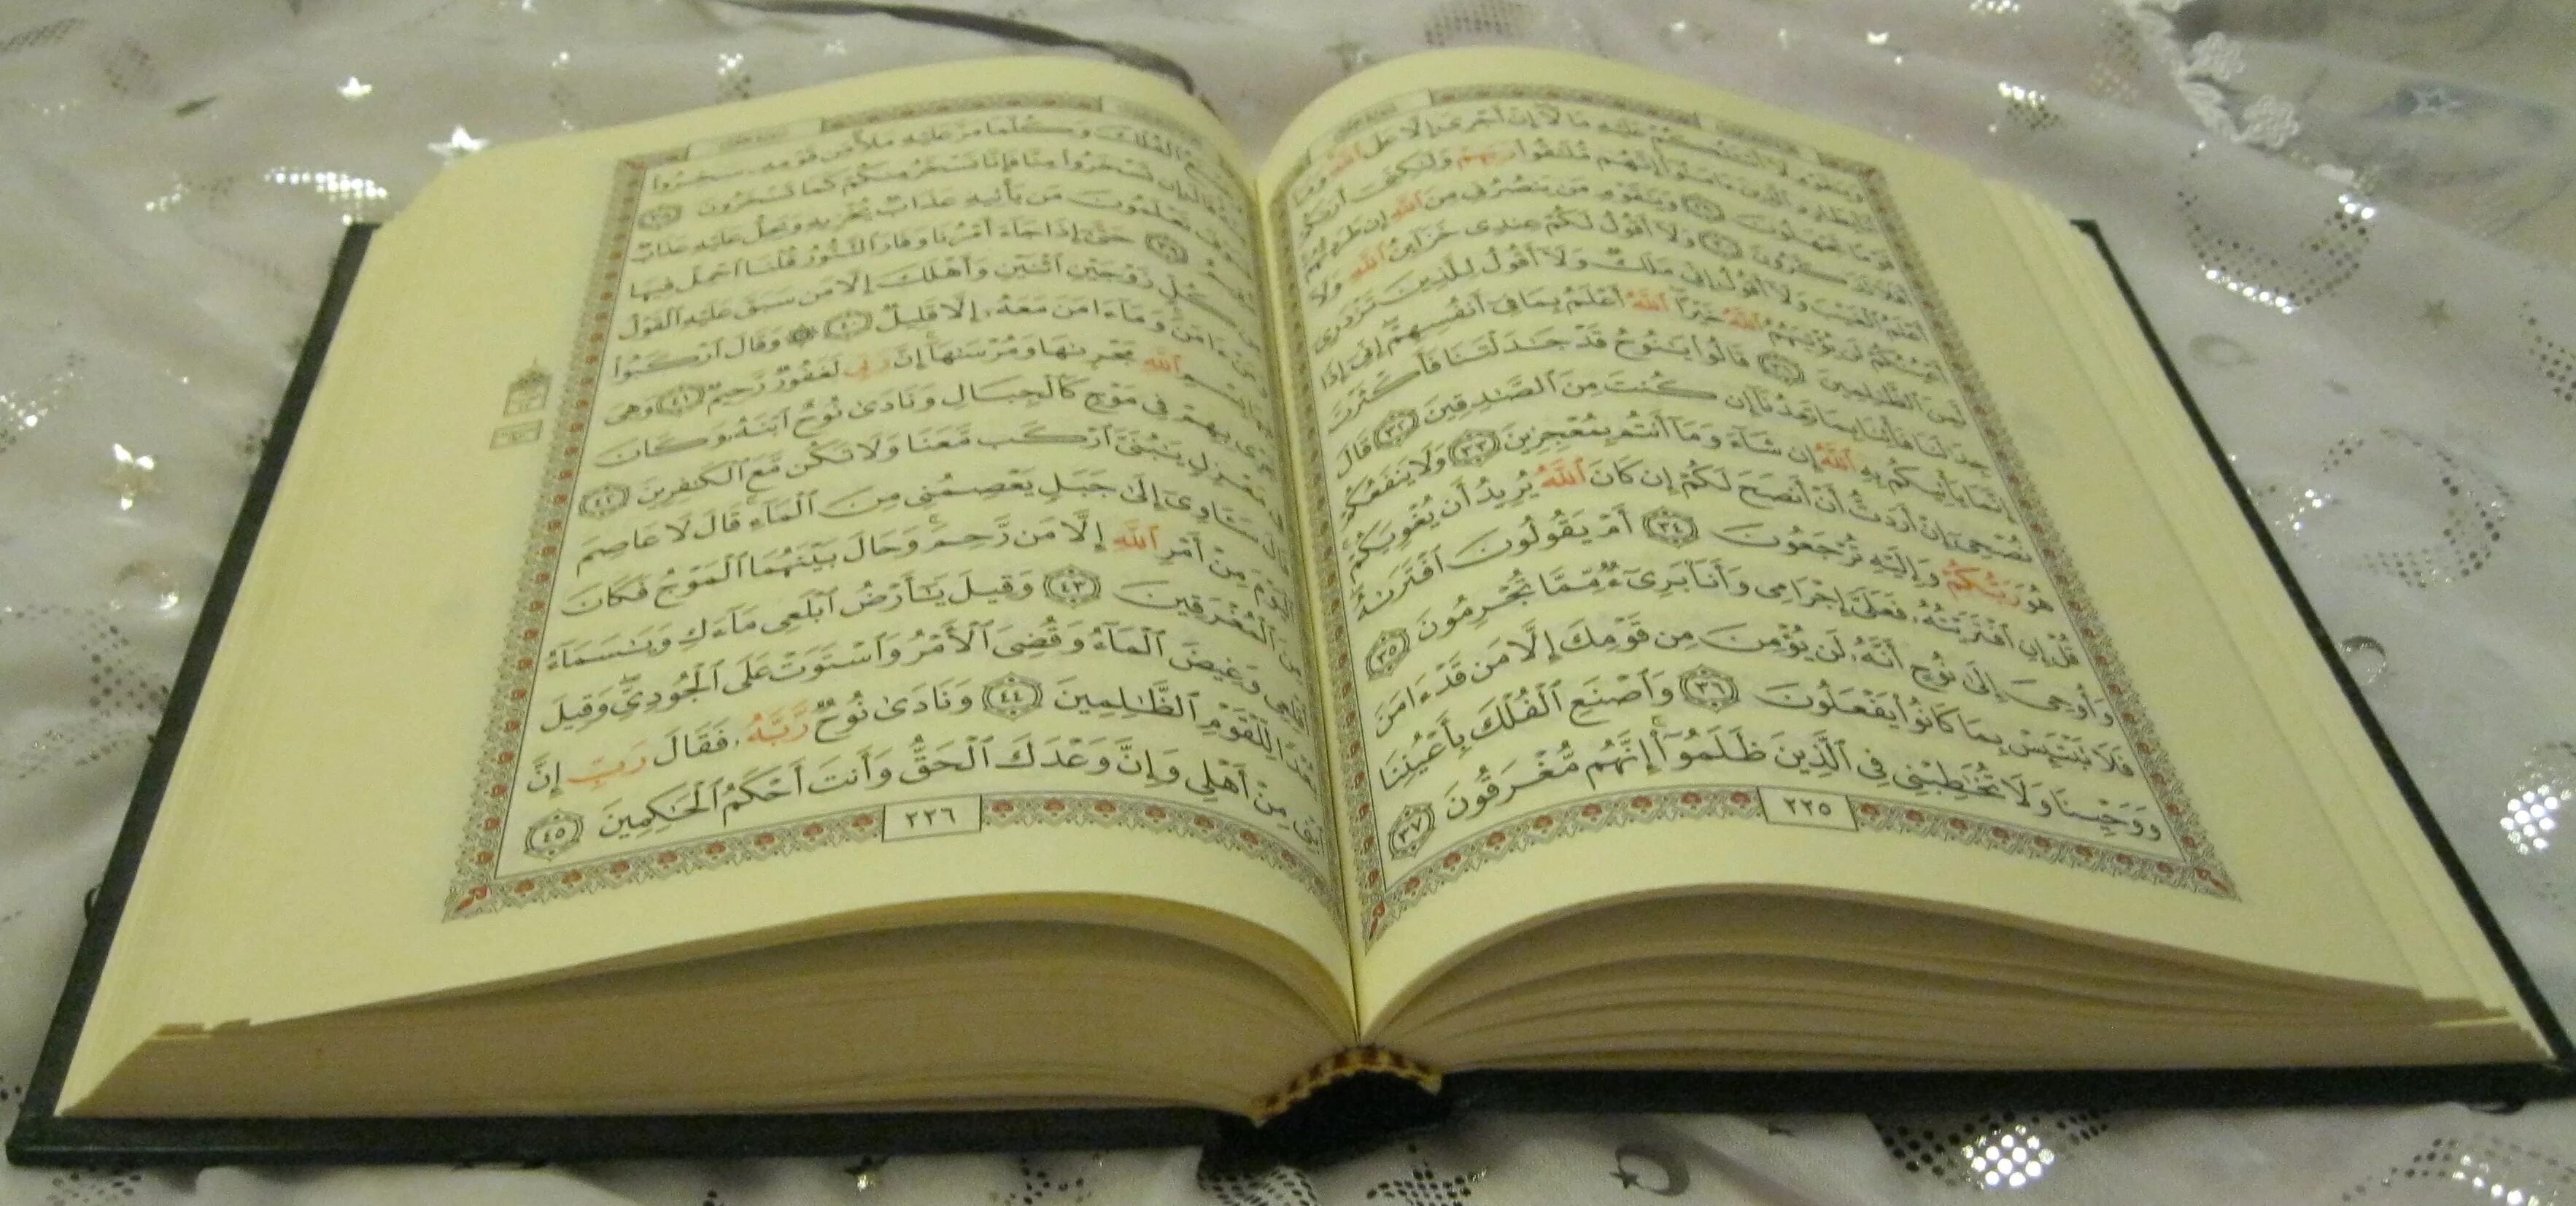 وَيَٰقَوْمِ لَآ أَسْـَٔلُكُمْ عَلَيْهِ مَالًا إِنْ أَجْرِىَ إِلَّا عَلَى ٱللَّهِ وَمَآ
أَنَا۠ بِطَارِدِ ٱلَّذِينَ ءَامَنُوٓا۟ إِنَّهُم مُّلَٰقُوا۟ رَبِّهِمْ وَلَٰكِنِّىٓ أَرَىٰكُمْ
قَوْمًا تَجْهَلُونَ ٢٩ وَيَٰقَوْمِ مَن يَنصُرُنِى مِنَ ٱللَّهِ إِن طَرَدتُّهُمْ
أَفَلَا تَذَكَّرُونَ ٣٠ وَلَآ أَقُولُ لَكُمْ عِندِى خَزَآئِنُ ٱللَّهِ وَلَآ
أَعْلَمُ ٱلْغَيْبَ وَلَآ أَقُولُ إِنِّى مَلَكٌ وَلَآ أَقُولُ لِلَّذِينَ تَزْدَرِىٓ
أَعْيُنُكُمْ لَن يُؤْتِيَهُمُ ٱللَّهُ خَيْرًا ٱللَّهُ أَعْلَمُ بِمَا فِىٓ أَنفُسِهِمْ إِنِّىٓ إِذًا
لَّمِنَ ٱلظَّٰلِمِينَ ٣١ قَالُوا۟ يَٰنُوحُ قَدْ جَٰدَلْتَنَا فَأَكْثَرْتَ
جِدَٰلَنَا فَأْتِنَا بِمَا تَعِدُنَآ إِن كُنتَ مِنَ ٱلصَّٰدِقِينَ ٣٢ قَالَ
إِنَّمَا يَأْتِيكُم بِهِ ٱللَّهُ إِن شَآءَ وَمَآ أَنتُم بِمُعْجِزِينَ ٣٣ وَلَا يَنفَعُكُمْ
نُصْحِىٓ إِنْ أَرَدتُّ أَنْ أَنصَحَ لَكُمْ إِن كَانَ ٱللَّهُ يُرِيدُ أَن يُغْوِيَكُمْ
هُوَ رَبُّكُمْ وَإِلَيْهِ تُرْجَعُونَ ٣٤ أَمْ يَقُولُونَ ٱفْتَرَىٰهُ
قُلْ إِنِ ٱفْتَرَيْتُهُۥ فَعَلَىَّ إِجْرَامِى وَأَنَا۠ بَرِىٓءٌ مِّمَّا تُجْرِمُونَ ٣٥
وَأُوحِىَ إِلَىٰ نُوحٍ أَنَّهُۥ لَن يُؤْمِنَ مِن قَوْمِكَ إِلَّا مَن قَدْ ءَامَنَ
فَلَا تَبْتَئِسْ بِمَا كَانُوا۟ يَفْعَلُونَ ٣٦ وَٱصْنَعِ ٱلْفُلْكَ بِأَعْيُنِنَا
وَوَحْيِنَا وَلَا تُخَٰطِبْنِى فِى ٱلَّذِينَ ظَلَمُوٓا۟ إِنَّهُم مُّغْرَقُونَ ٣٧
٢٢٥
ٱلْفُلْكَ وَكُلَّمَا مَرَّ عَلَيْهِ مَلَأٌ مِّن قَوْمِهِۦ سَخِرُوا۟
تَسْخَرُوا۟ مِنَّا فَإِنَّا نَسْخَرُ مِنكُمْ كَمَا تَسْخَرُونَ ٣٨
تَعْلَمُونَ مَن يَأْتِيهِ عَذَابٌ يُخْزِيهِ وَيَحِلُّ عَلَيْهِ عَذَابٌ
٣٩ حَتَّىٰٓ إِذَا جَآءَ أَمْرُنَا وَفَارَ ٱلتَّنُّورُ قُلْنَا ٱحْمِلْ فِيهَا
كُلٍّ زَوْجَيْنِ ٱثْنَيْنِ وَأَهْلَكَ إِلَّا مَن سَبَقَ عَلَيْهِ ٱلْقَوْلُ
ءَامَنَ وَمَآ ءَامَنَ مَعَهُۥٓ إِلَّا قَلِيلٌ ٤٠ ۞ وَقَالَ ٱرْكَبُوا۟
ٱللَّهِ مَجْر۪ىٰهَا وَمُرْسَىٰهَآ إِنَّ رَبِّى لَغَفُورٌ رَّحِيمٌ ٤١ وَهِىَ
بِهِمْ فِى مَوْجٍ كَٱلْجِبَالِ وَنَادَىٰ نُوحٌ ٱبْنَهُۥ وَكَانَ
مَعْزِلٍ يَٰبُنَىَّ ٱرْكَب مَّعَنَا وَلَا تَكُن مَّعَ ٱلْكَٰفِرِينَ ٤٢
قَالَ سَـَٔاوِىٓ إِلَىٰ جَبَلٍ يَعْصِمُنِى مِنَ ٱلْمَآءِ قَالَ لَا عَاصِمَ
ٱلْيَوْمَ مِنْ أَمْرِ ٱللَّهِ إِلَّا مَن رَّحِمَ وَحَالَ بَيْنَهُمَا ٱلْمَوْجُ فَكَانَ
مِنَ ٱلْمُغْرَقِينَ ٤٣ وَقِيلَ يَٰٓأَرْضُ ٱبْلَعِى مَآءَكِ وَيَٰسَمَآءُ
أَقْلِعِى وَغِيضَ ٱلْمَآءُ وَقُضِىَ ٱلْأَمْرُ وَٱسْتَوَتْ عَلَى ٱلْجُودِىِّ وَقِيلَ
بُعْدًا لِّلْقَوْمِ ٱلظَّٰلِمِينَ ٤٤ وَنَادَىٰ نُوحٌ رَّبَّهُۥ فَقَالَ رَبِّ إِنَّ
ٱبْنِى مِنْ أَهْلِى وَإِنَّ وَعْدَكَ ٱلْحَقُّ وَأَنتَ أَحْكَمُ ٱلْحَٰكِمِينَ ٤٥
٢٢٦